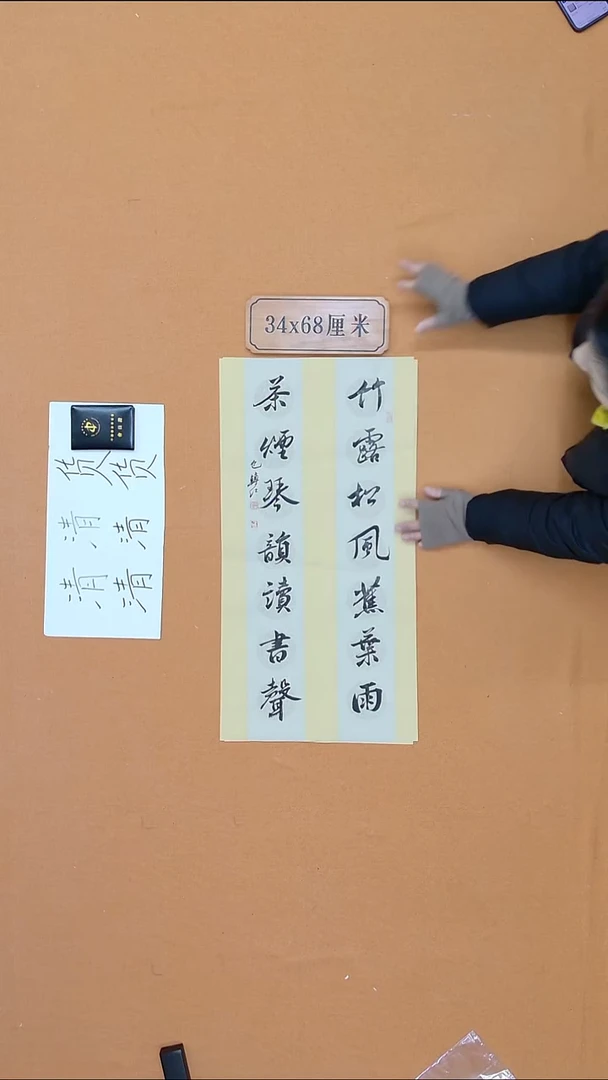 34x68厘米
竹露松風蕉葉雨
茶煙琴韻讀書聲
货货
清清
清清